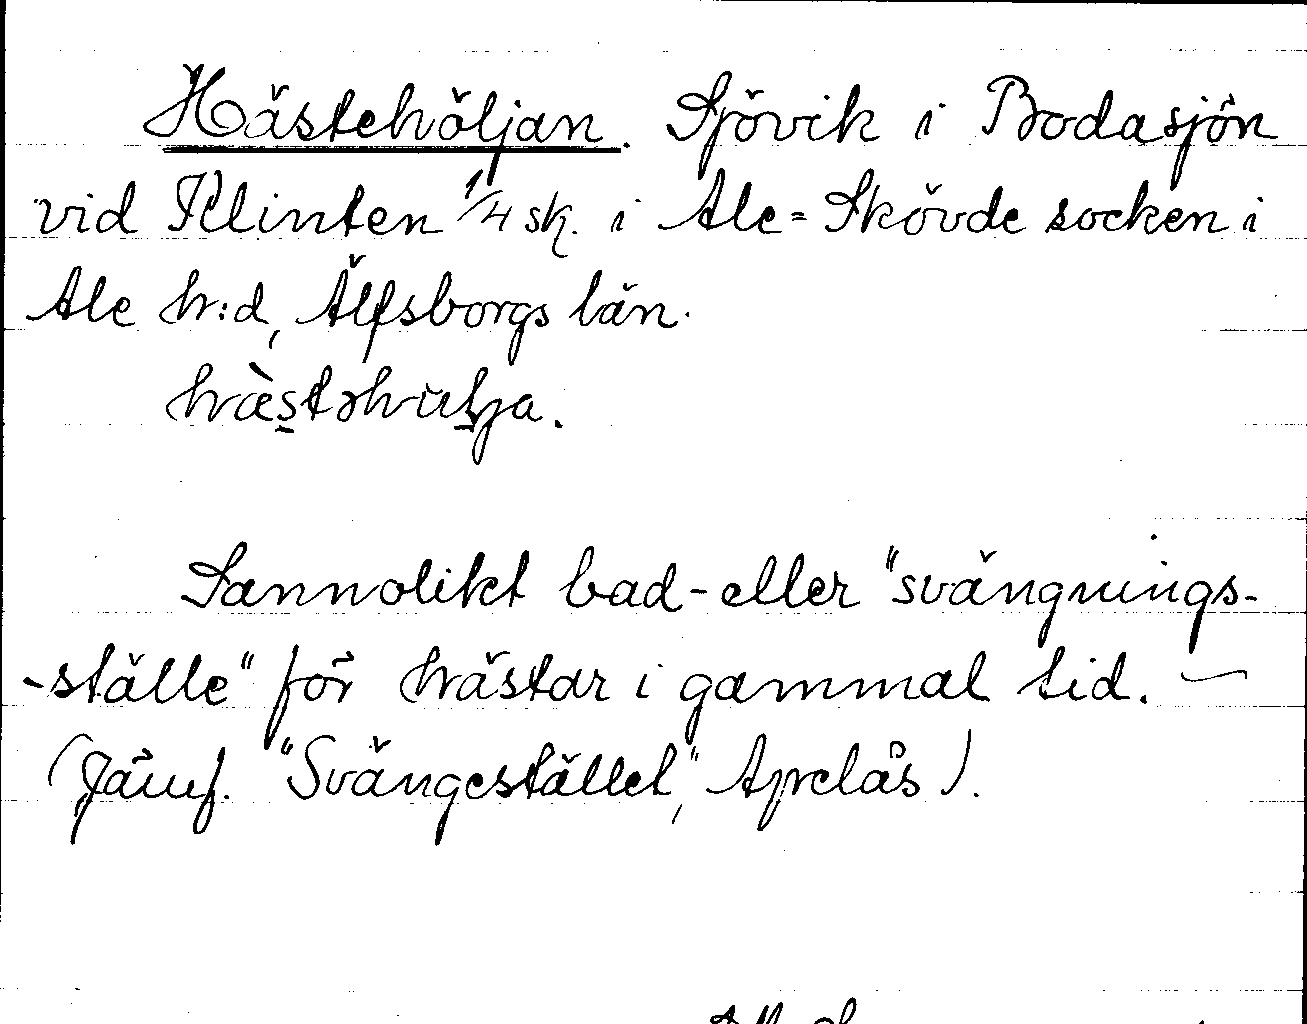 Hästehöljan. Sjövik i Bodasjön
vid Klinten 1/4 sk. i Ale=Skövde socken i
Ale h:d, Älfsborgs län.
Sannolikt bad- eller "svängnings-
-ställe" för hästar i gammal tid. —
(Jämf. "Svängestället," Aprelås).